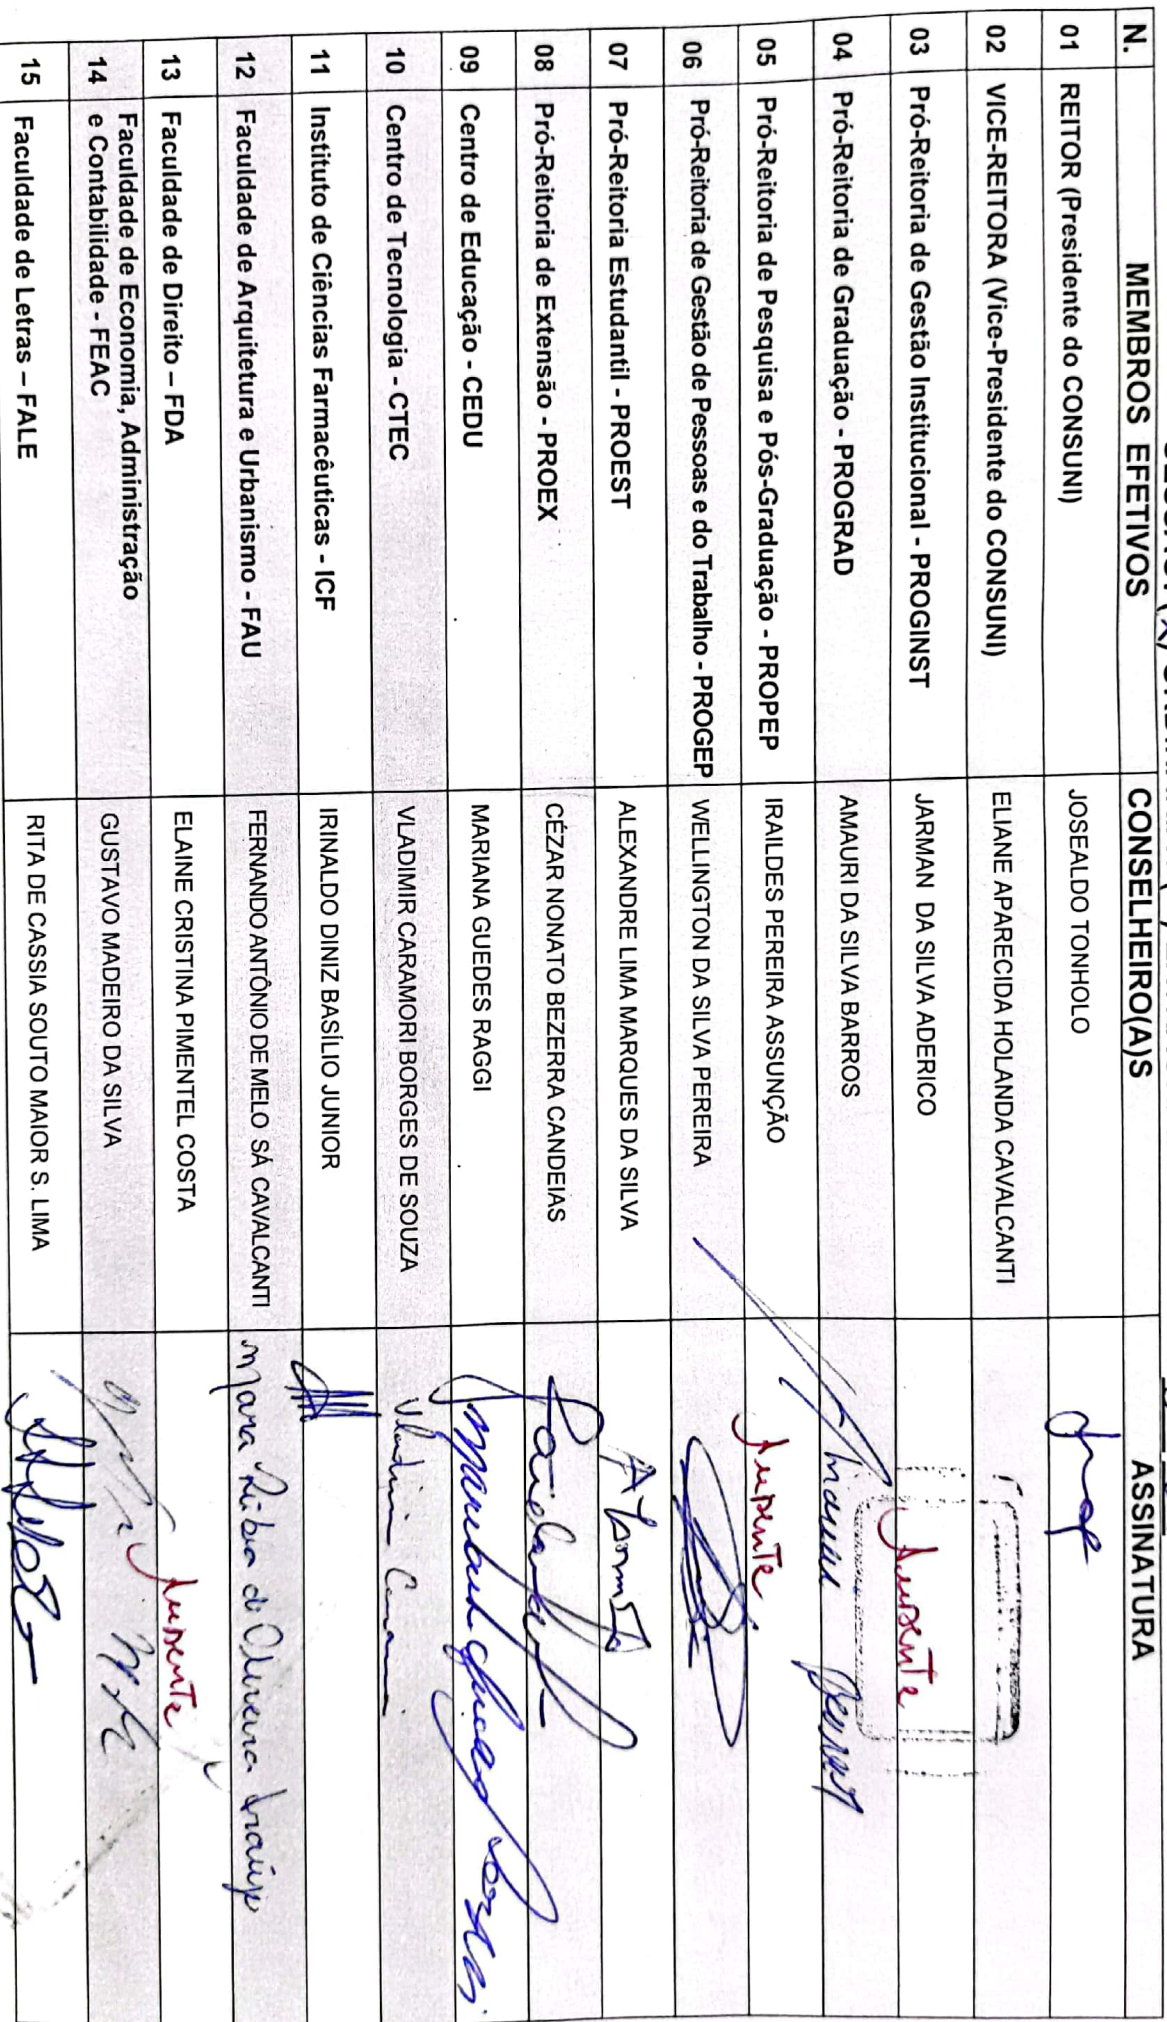 N. MEMBROS EFETIVOS CONSELHEIRO(A)S ASSINATURA
01 REITOR (Presidente do CONSUNI) JOSEALDO TONHOLO
02 VICE-REITORA (Vice-Presidente do CONSUNI) ELIANE APARECIDA HOLANDA CAVALCANTI
03 Pró-Reitoria de Gestão Institucional - PROGINST JARMAN DA SILVA ADERICO Ausente
04 Pró-Reitoria de Graduação - PROGRAD AMAURI DA SILVA BARROS Amauri Barros
05 Pró-Reitoria de Pesquisa e Pós-Graduação - PROPEP IRAILDES PEREIRA ASSUNÇÃO Ausente
06 Pró-Reitoria de Gestão de Pessoas e do Trabalho - PROGEP WELLINGTON DA SILVA PEREIRA
07 Pró-Reitoria Estudantil - PROEST ALEXANDRE LIMA MARQUES DA SILVA
08 Pró-Reitoria de Extensão - PROEX CÉZAR NONATO BEZERRA CANDEIAS
09 Centro de Educação - CEDU MARIANA GUEDES RAGGI
10 Centro de Tecnologia - CTEC VLADIMIR CARAMORI BORGES DE SOUZA Vladimir
11 Instituto de Ciências Farmacêuticas - ICF IRINALDO DINIZ BASÍLIO JUNIOR
12 Faculdade de Arquitetura e Urbanismo - FAU FERNANDO ANTÔNIO DE MELO SÁ CAVALCANTI Mara Rúbia de Oliveira Araújo
13 Faculdade de Direito – FDA ELAINE CRISTINA PIMENTEL COSTA Ausente
14 Faculdade de Economia, Administração
e Contabilidade - FEAC GUSTAVO MADEIRO DA SILVA
15 Faculdade de Letras – FALE RITA DE CASSIA SOUTO MAIOR S. LIMA